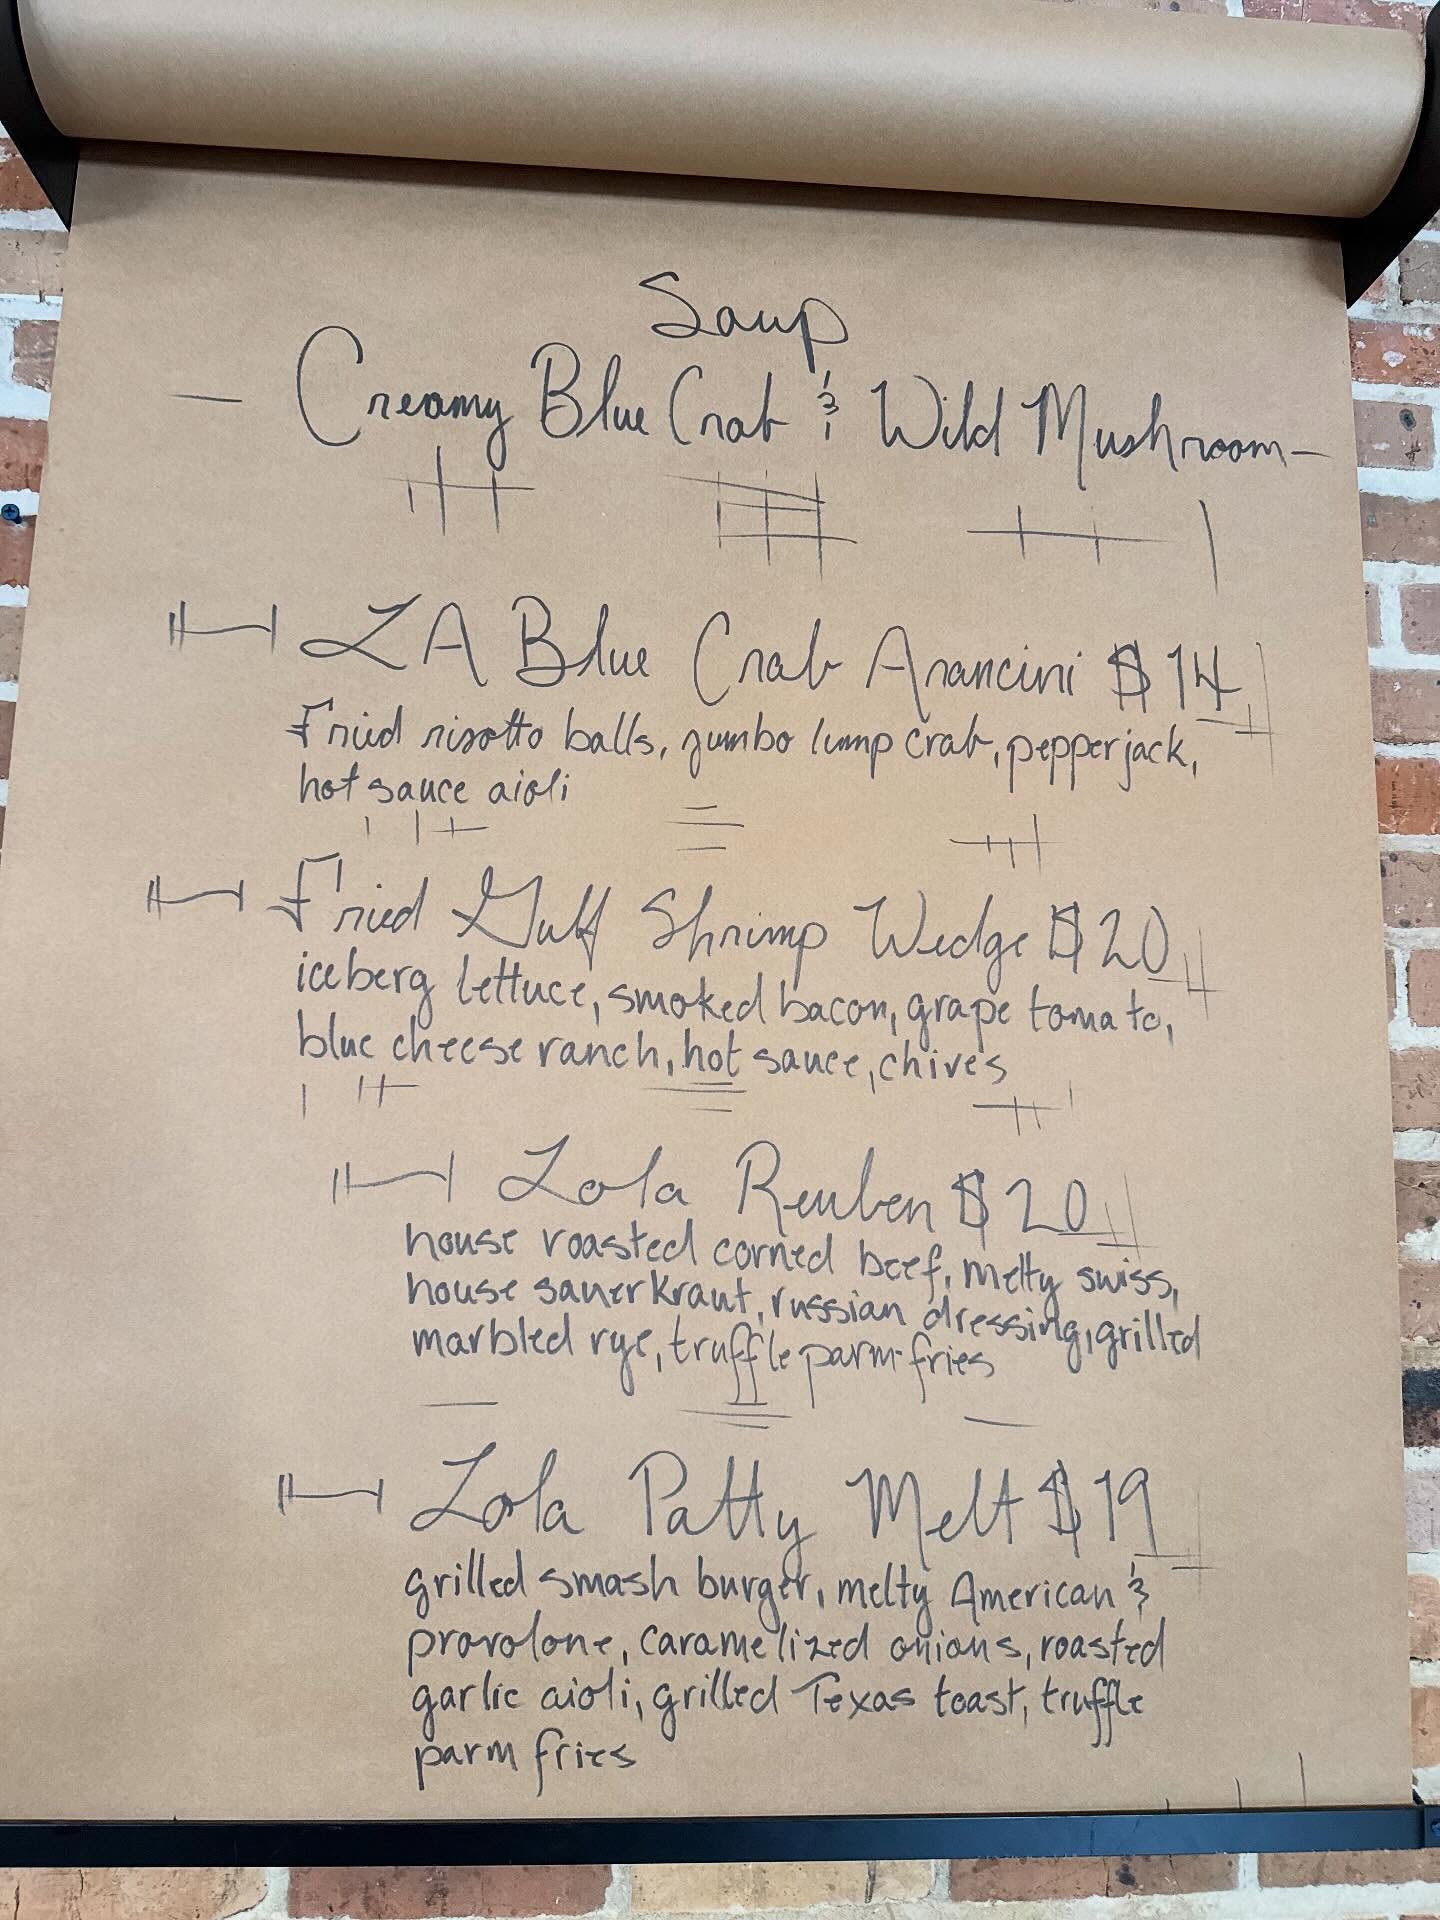 Soup
- Creamy Blue Crab & Wild Mushroom -
LA Blue Crab Arancini $14
Fried risotto balls, jumbo lump crab, pepperjack,
hot sauce aioli
Fried Gulf Shrimp Wedge $20
iceberg lettuce, smoked bacon, grape tomato,
blue cheese ranch, hot sauce, chives
Lola Reuben $20
house roasted corned beef, melty swiss,
house sauerkraut, russian dressing, grilled
marbled rye, truffle parm fries
Lola Patty Melt $19
grilled smash burger, melty American &
provolone, caramelized onions, roasted
garlic aioli, grilled Texas toast, truffle
parm fries